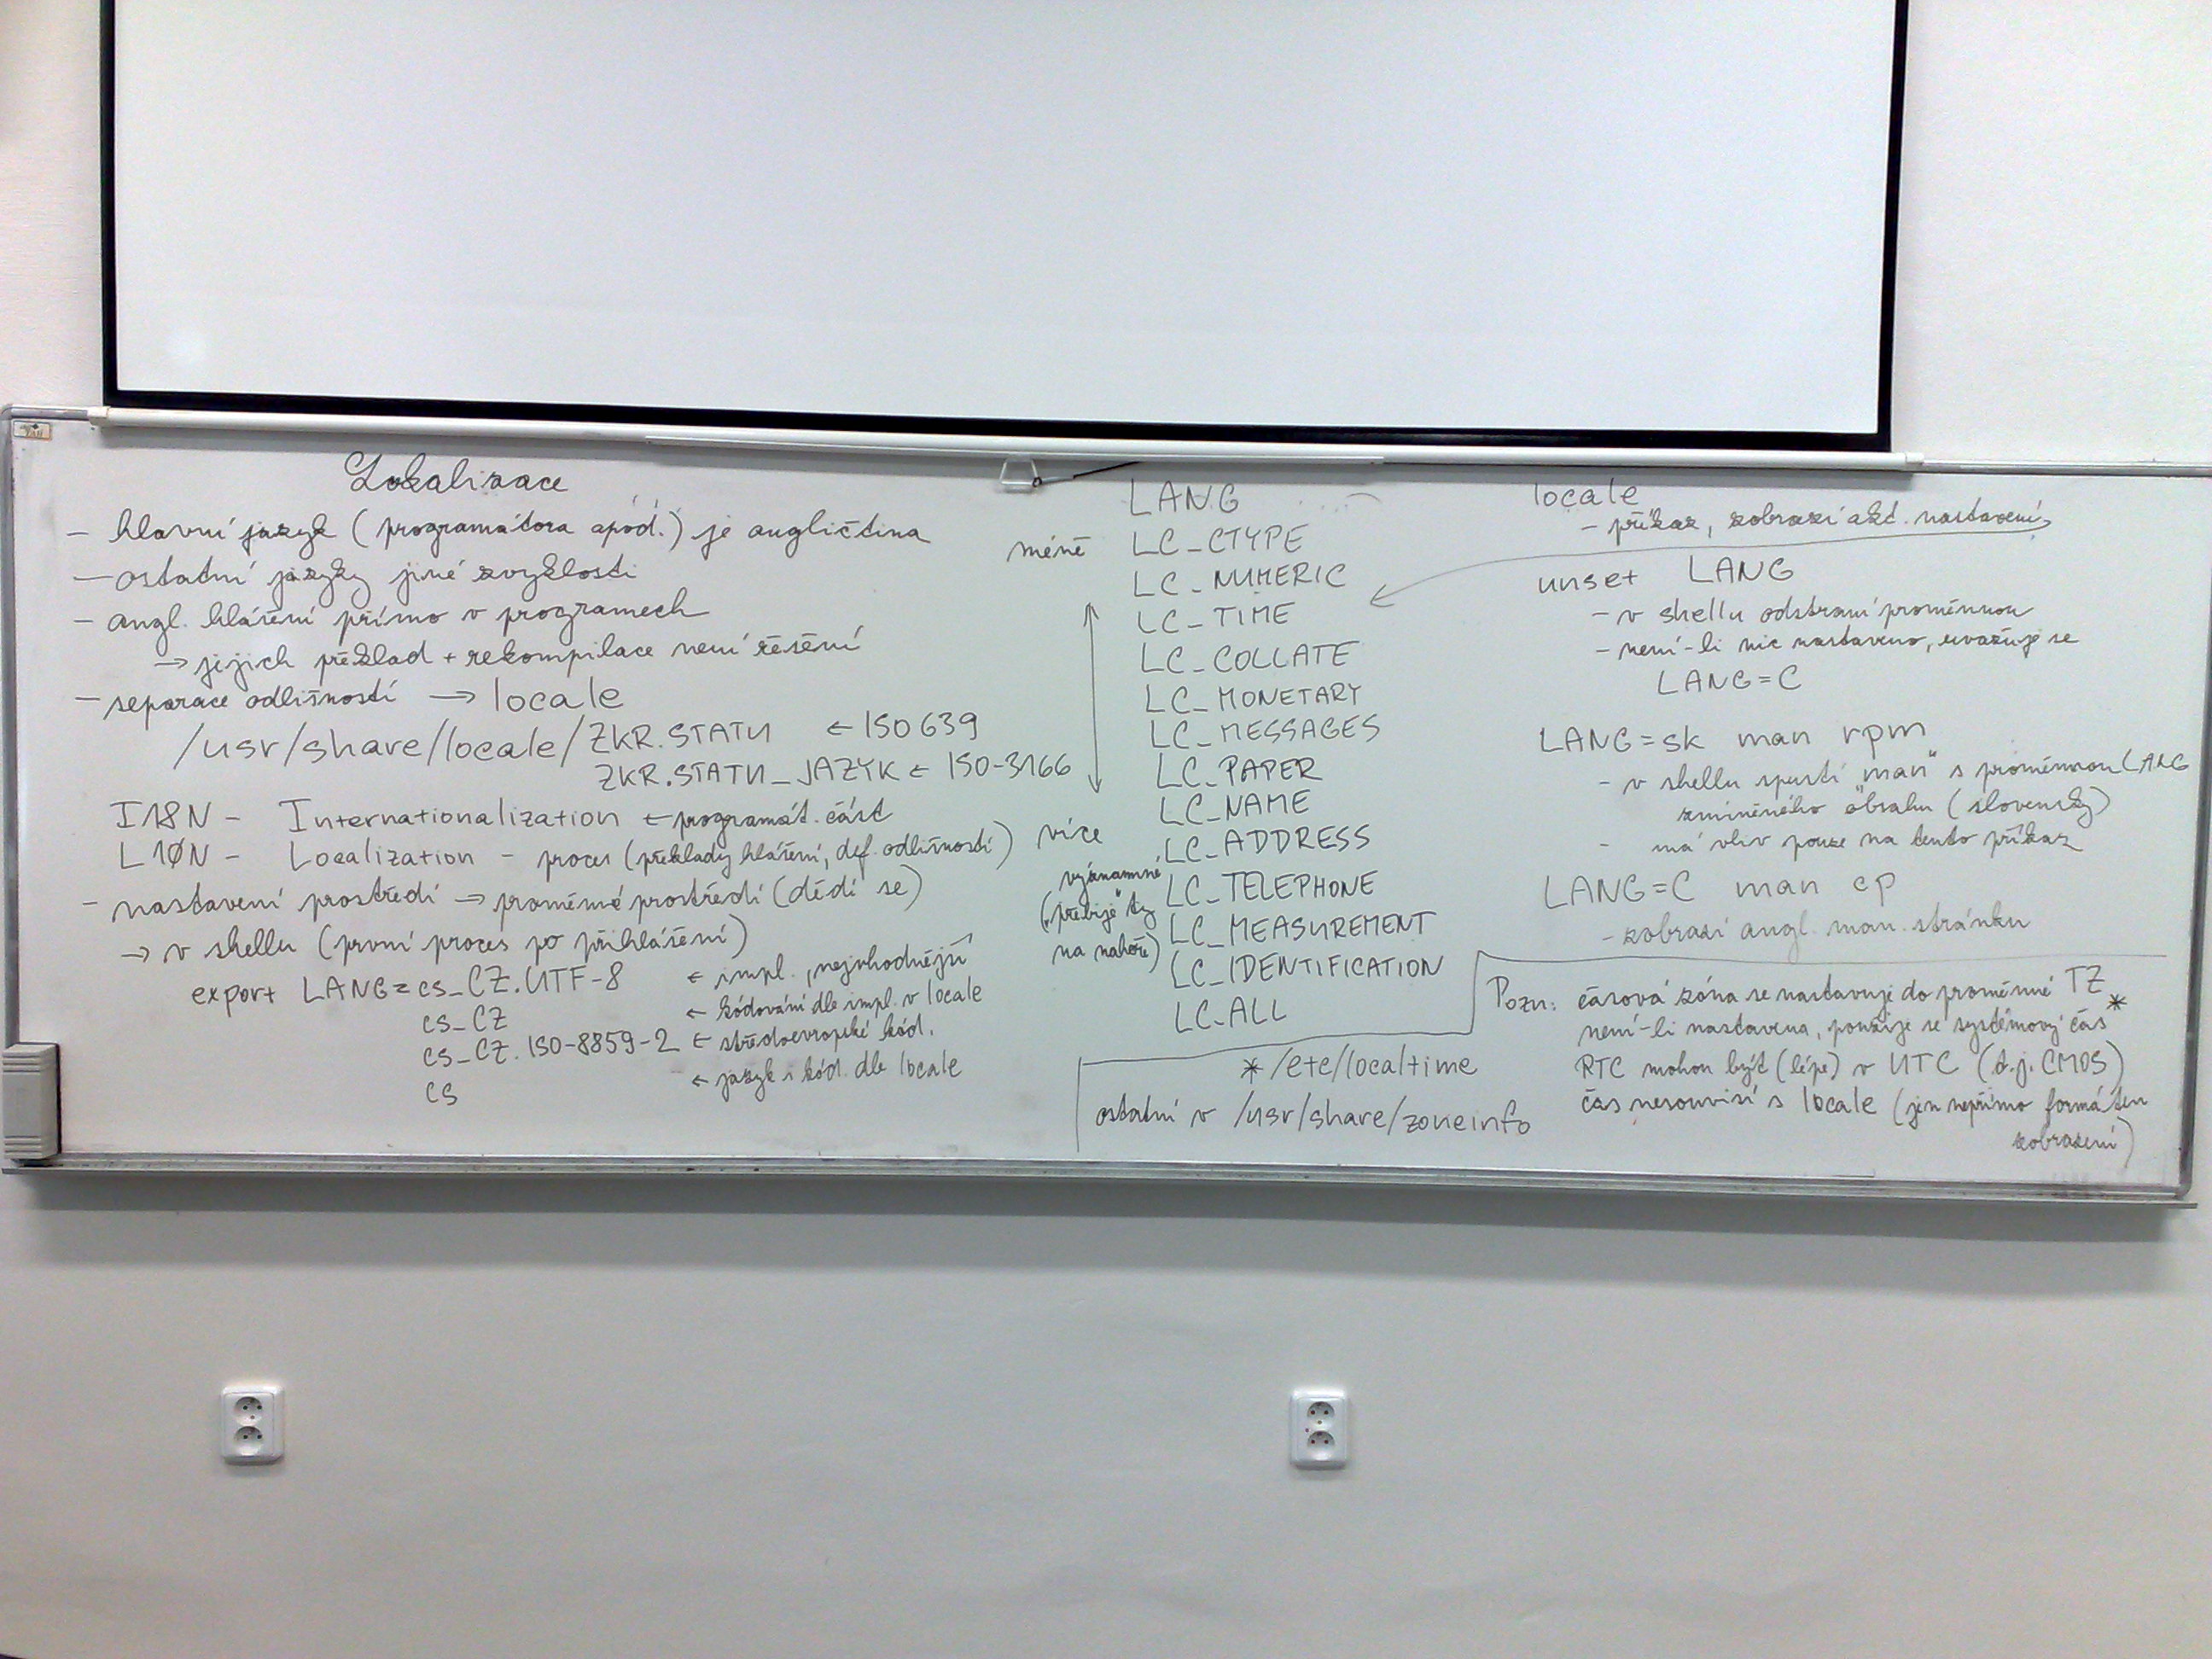 Lokalizace
- hlavní jazyk (programátora apod.) je angličtina
- ostatní jazyky jiné zvyklosti
- angl. hlášení přímo v programech
→ jejich překlad + rekompilace není řešení
- separace odlišností → locale
/usr/share/locale/ZKR.STATU ← ISO 639
ZKR.STATU_JAZYK ← ISO-3166
I18N - Internationalization ← programát. část
L10N - Localization - proces (překlady hlášení, def. odlišností)
- nastavení prostředí → proměnné prostředí (dědí se)
→ v shellu (první proces po přihlášení)
export LANG=cs_CZ.UTF-8 ← impl., nejvhodnější
cs_CZ ← kódování dle impl. v locale
cs_CZ.ISO-8859-2 ← středoevropské kód.
cs ← jazyk i kód. dle locale
LANG
méně LC_CTYPE
LC_NUMERIC
LC_TIME
LC_COLLATE
LC_MONETARY
LC_MESSAGES
LC_PAPER
LC_NAME
více LC_ADDRESS
významné LC_TELEPHONE
("přebije" ty LC_MEASUREMENT
na nahoře) LC_IDENTIFICATION
LC_ALL
* /etc/localtime
ostatní v /usr/share/zoneinfo
locale
- příkaz, zobrazí akt. nastavení
unset LANG
- v shellu odstraní proměnnou
- není-li nic nastaveno, uvažuje se
LANG=C
LANG=sk man rpm
- v shellu spustí "man" s proměnnou LANG
zmíněného obsahu (slovensky)
- má vliv pouze na tento příkaz
LANG=C man cp
- zobrazí angl. man. stránku
Pozn: časová zóna se nastavuje do proměnné TZ
není-li nastavena, použije se systémový čas *
RTC mohou být (lépe) v UTC (t.j. CMOS)
čas nesouvisí s locale (jen nepřímo formátem
zobrazení)